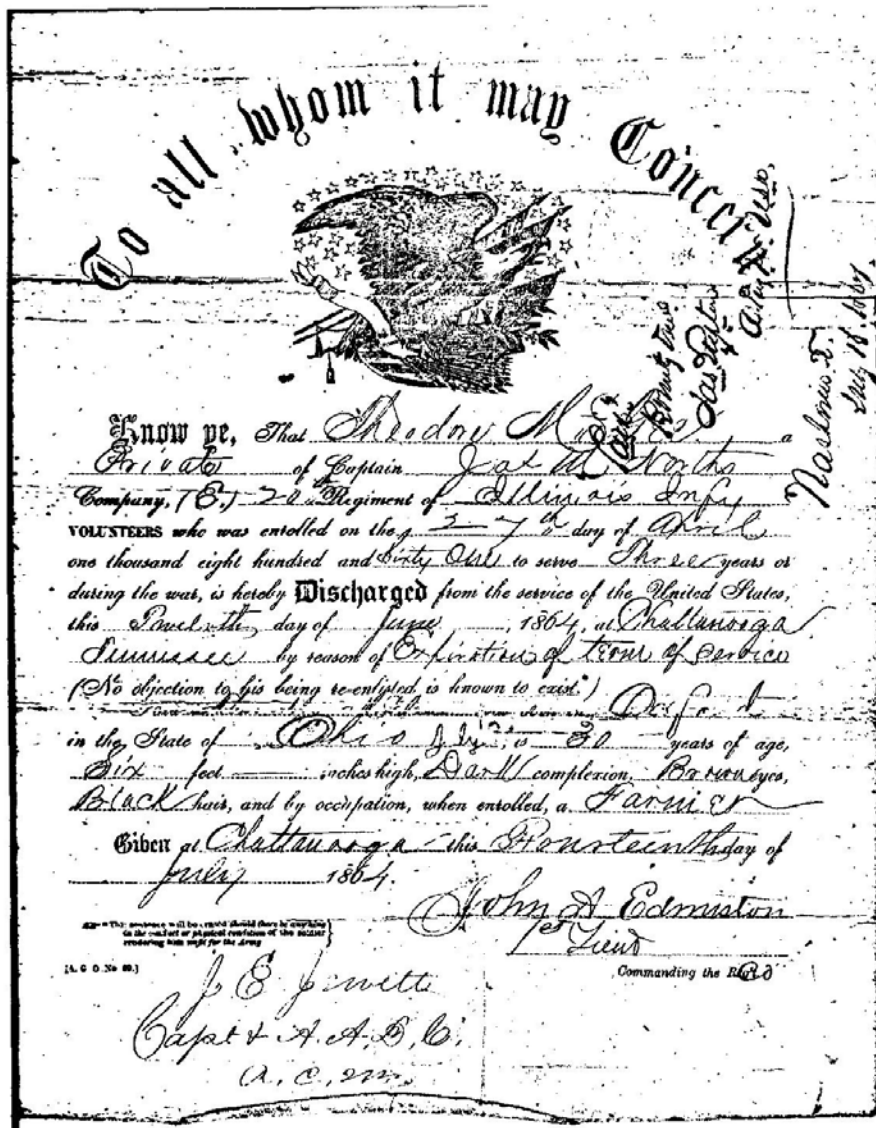 To all whom it may Concern
Know ye, That Theodore a
Private of Captain Norths
Company, (E.) 20th Regiment of Illinois Infy
VOLUNTEERS who was enrolled on the 27th day of April
one thousand eight hundred and Sixty One to serve Three years or
during the war, is hereby Discharged from the service of the United States,
this Twelvth day of June, 1864, at Chattanooga
Tennessee by reason of Expiration of term of service
(No objection to his being re-enlisted is known to exist.*)
in the State of Ohio is 30 years of age,
Six feet inches high, Dark complexion, Brown eyes,
Black hair, and by occupation, when enrolled, a Farmer
Given at Chattanooga this Fourteenth day of
July 1864.
John A Edmiston
1st Lieut
Commanding the Reg't
*This sentence will be erased should there be anything
in the conduct or physical condition of the soldier
rendering him unfit for the Army
[A. G. O. No 99.]
J E Jewett
Capt &
A. C. M.
Bounty